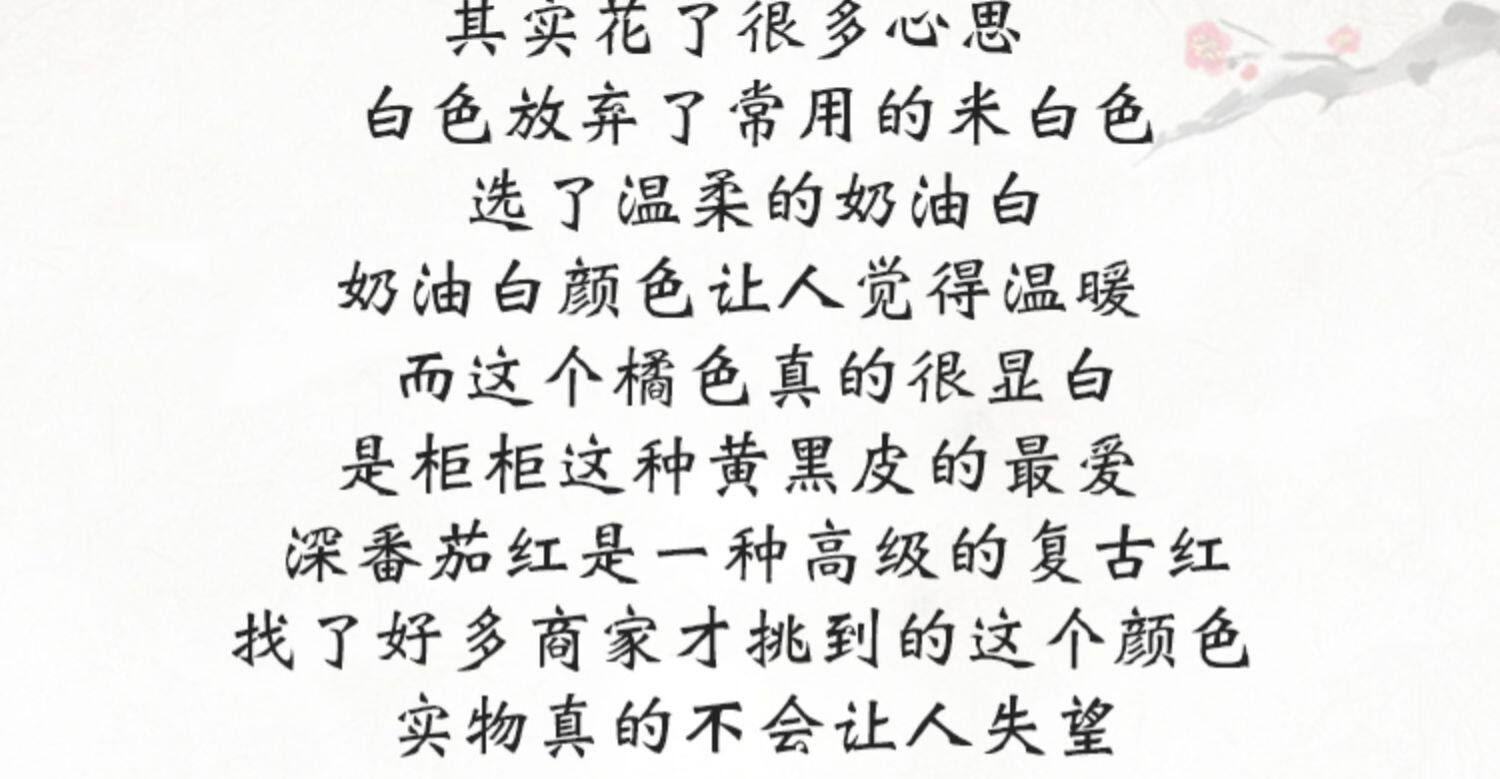 其实花了很多心思
白色放弃了常用的米白色
选了温柔的奶油白
奶油白颜色让人觉得温暖
而这个橘色真的很显白
是柜柜这种黄黑皮的最爱
深番茄红是一种高级的复古红
找了好多商家才挑到的这个颜色
实物真的不会让人失望